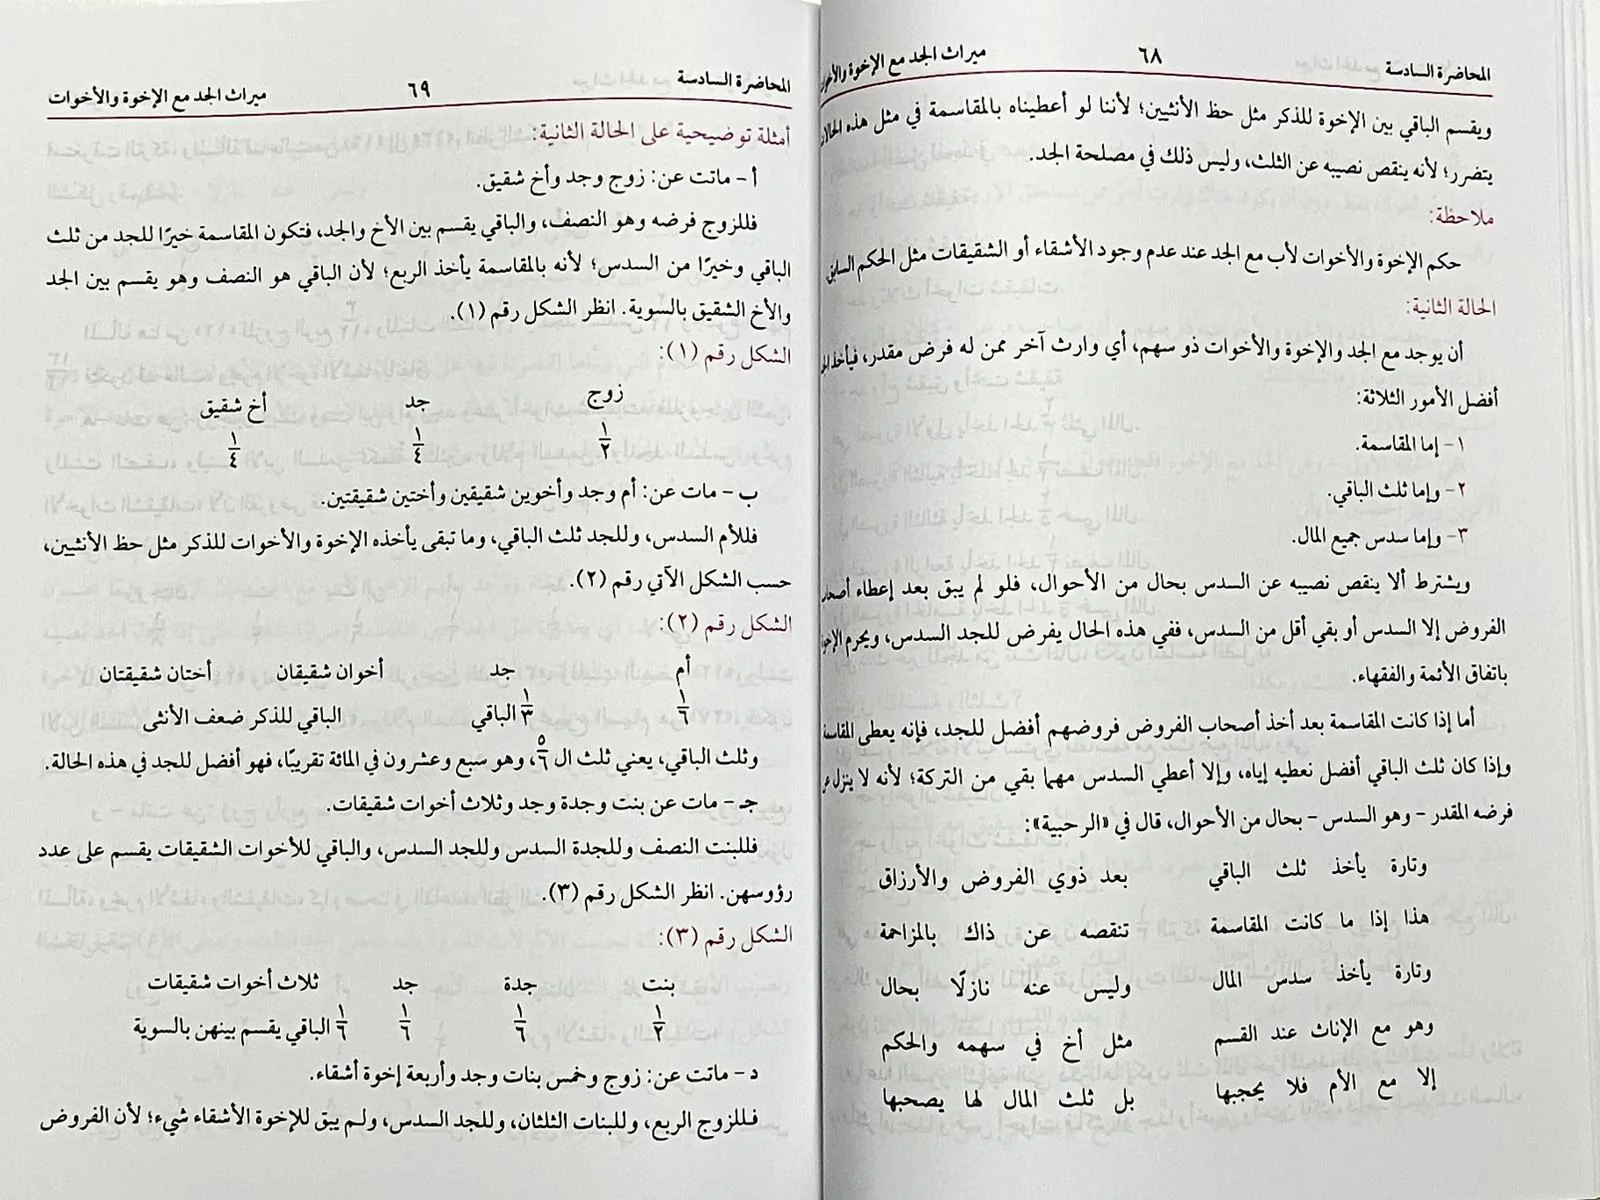 المحاضرة السادسة ٦٨ ميراث الجد مع الإخوة والأخوات
ويقسم الباقي بين الإخوة للذكر مثل حظ الأنثيين؛ لأننا لو أعطيناه بالمقاسمة في مثل هذه الحالات
يتضرر؛ لأنه ينقص نصيبه عن الثلث، وليس ذلك في مصلحة الجد.
ملاحظة:
حكم الإخوة والأخوات لأب مع الجد عند عدم وجود الأشقاء أو الشقيقات مثل الحكم السابق.
الحالة الثانية:
أن يوجد مع الجد والإخوة والأخوات ذو سهم، أي وارث آخر ممن له فرض مقدر، فيأخذ
أفضل الأمور الثلاثة:
١- إما المقاسمة.
٢- وإما ثلث الباقي.
٣- وإما سدس جميع المال.
ويشترط ألا ينقص نصيبه عن السدس بحال من الأحوال، فلو لم يبق بعد إعطاء أصحاب
الفروض إلا السدس أو بقي أقل من السدس، ففي هذه الحال يفرض للجد السدس، ويحرم الإخوة
باتفاق الأئمة والفقهاء.
أما إذا كانت المقاسمة بعد أخذ أصحاب الفروض فروضهم أفضل للجد، فإنه يعطى المقاسمة
وإذا كان ثلث الباقي أفضل نعطيه إياه، وإلا أعطي السدس مهما بقي من التركة؛ لأنه لا ينزل عن
فرضه المقدر – وهو السدس – بحال من الأحوال، قال في «الرحبية»:
وتارة يأخذ ثلث الباقي بعد ذوي الفروض والأرزاق
هذا إذا ما كانت المقاسمة تنقصه عن ذاك بالمزاحمة
وتارة يأخذ سدس المال وليس عنه نازلًا بحال
وهو مع الإناث عند القسم مثل أخ في سهمه والحكم
إلا مع الأم فلا يحجبها بل ثلث المال لها يصحبها
المحاضرة السادسة ٦٩ ميراث الجد مع الإخوة والأخوات
أمثلة توضيحية على الحالة الثانية:
أ – ماتت عن: زوج وجد وأخ شقيق.
فللزوج فرضه وهو النصف، والباقي يقسم بين الأخ والجد، فتكون المقاسمة خيرًا للجد من ثلث
الباقي وخيرًا من السدس؛ لأنه بالمقاسمة يأخذ الربع؛ لأن الباقي هو النصف وهو يقسم بين الجد
والأخ الشقيق بالسوية. انظر الشكل رقم (١).
الشكل رقم (١):
زوج جد أخ شقيق
١/٢ ١/٤ ١/٤
ب – مات عن: أم وجد وأخوين شقيقين وأختين شقيقتين.
فللأم السدس، وللجد ثلث الباقي، وما تبقى يأخذه الإخوة والأخوات للذكر مثل حظ الأنثيين،
حسب الشكل الآتي رقم (٢).
الشكل رقم (٢):
أم جد أخوان شقيقان أختان شقيقتان
١/٦ ١/٣ الباقي الباقي للذكر ضعف الأنثى
وثلث الباقي، يعني ثلث ال ٥/٦، وهو سبع وعشرون في المائة تقريبًا، فهو أفضل للجد في هذه الحالة.
جـ – مات عن بنت وجدة وجد وثلاث أخوات شقيقات.
فللبنت النصف وللجدة السدس وللجد السدس، والباقي للأخوات الشقيقات يقسم على عدد
رؤوسهن. انظر الشكل رقم (٣).
الشكل رقم (٣):
بنت جدة جد ثلاث أخوات شقيقات
١/٢ ١/٦ ١/٦ ١/٦ الباقي يقسم بينهن بالسوية
د – ماتت عن: زوج وخمس بنات وجد وأربعة إخوة أشقاء.
فللزوج الربع، وللبنات الثلثان، وللجد السدس، ولم يبق للإخوة الأشقاء شيء؛ لأن الفروض